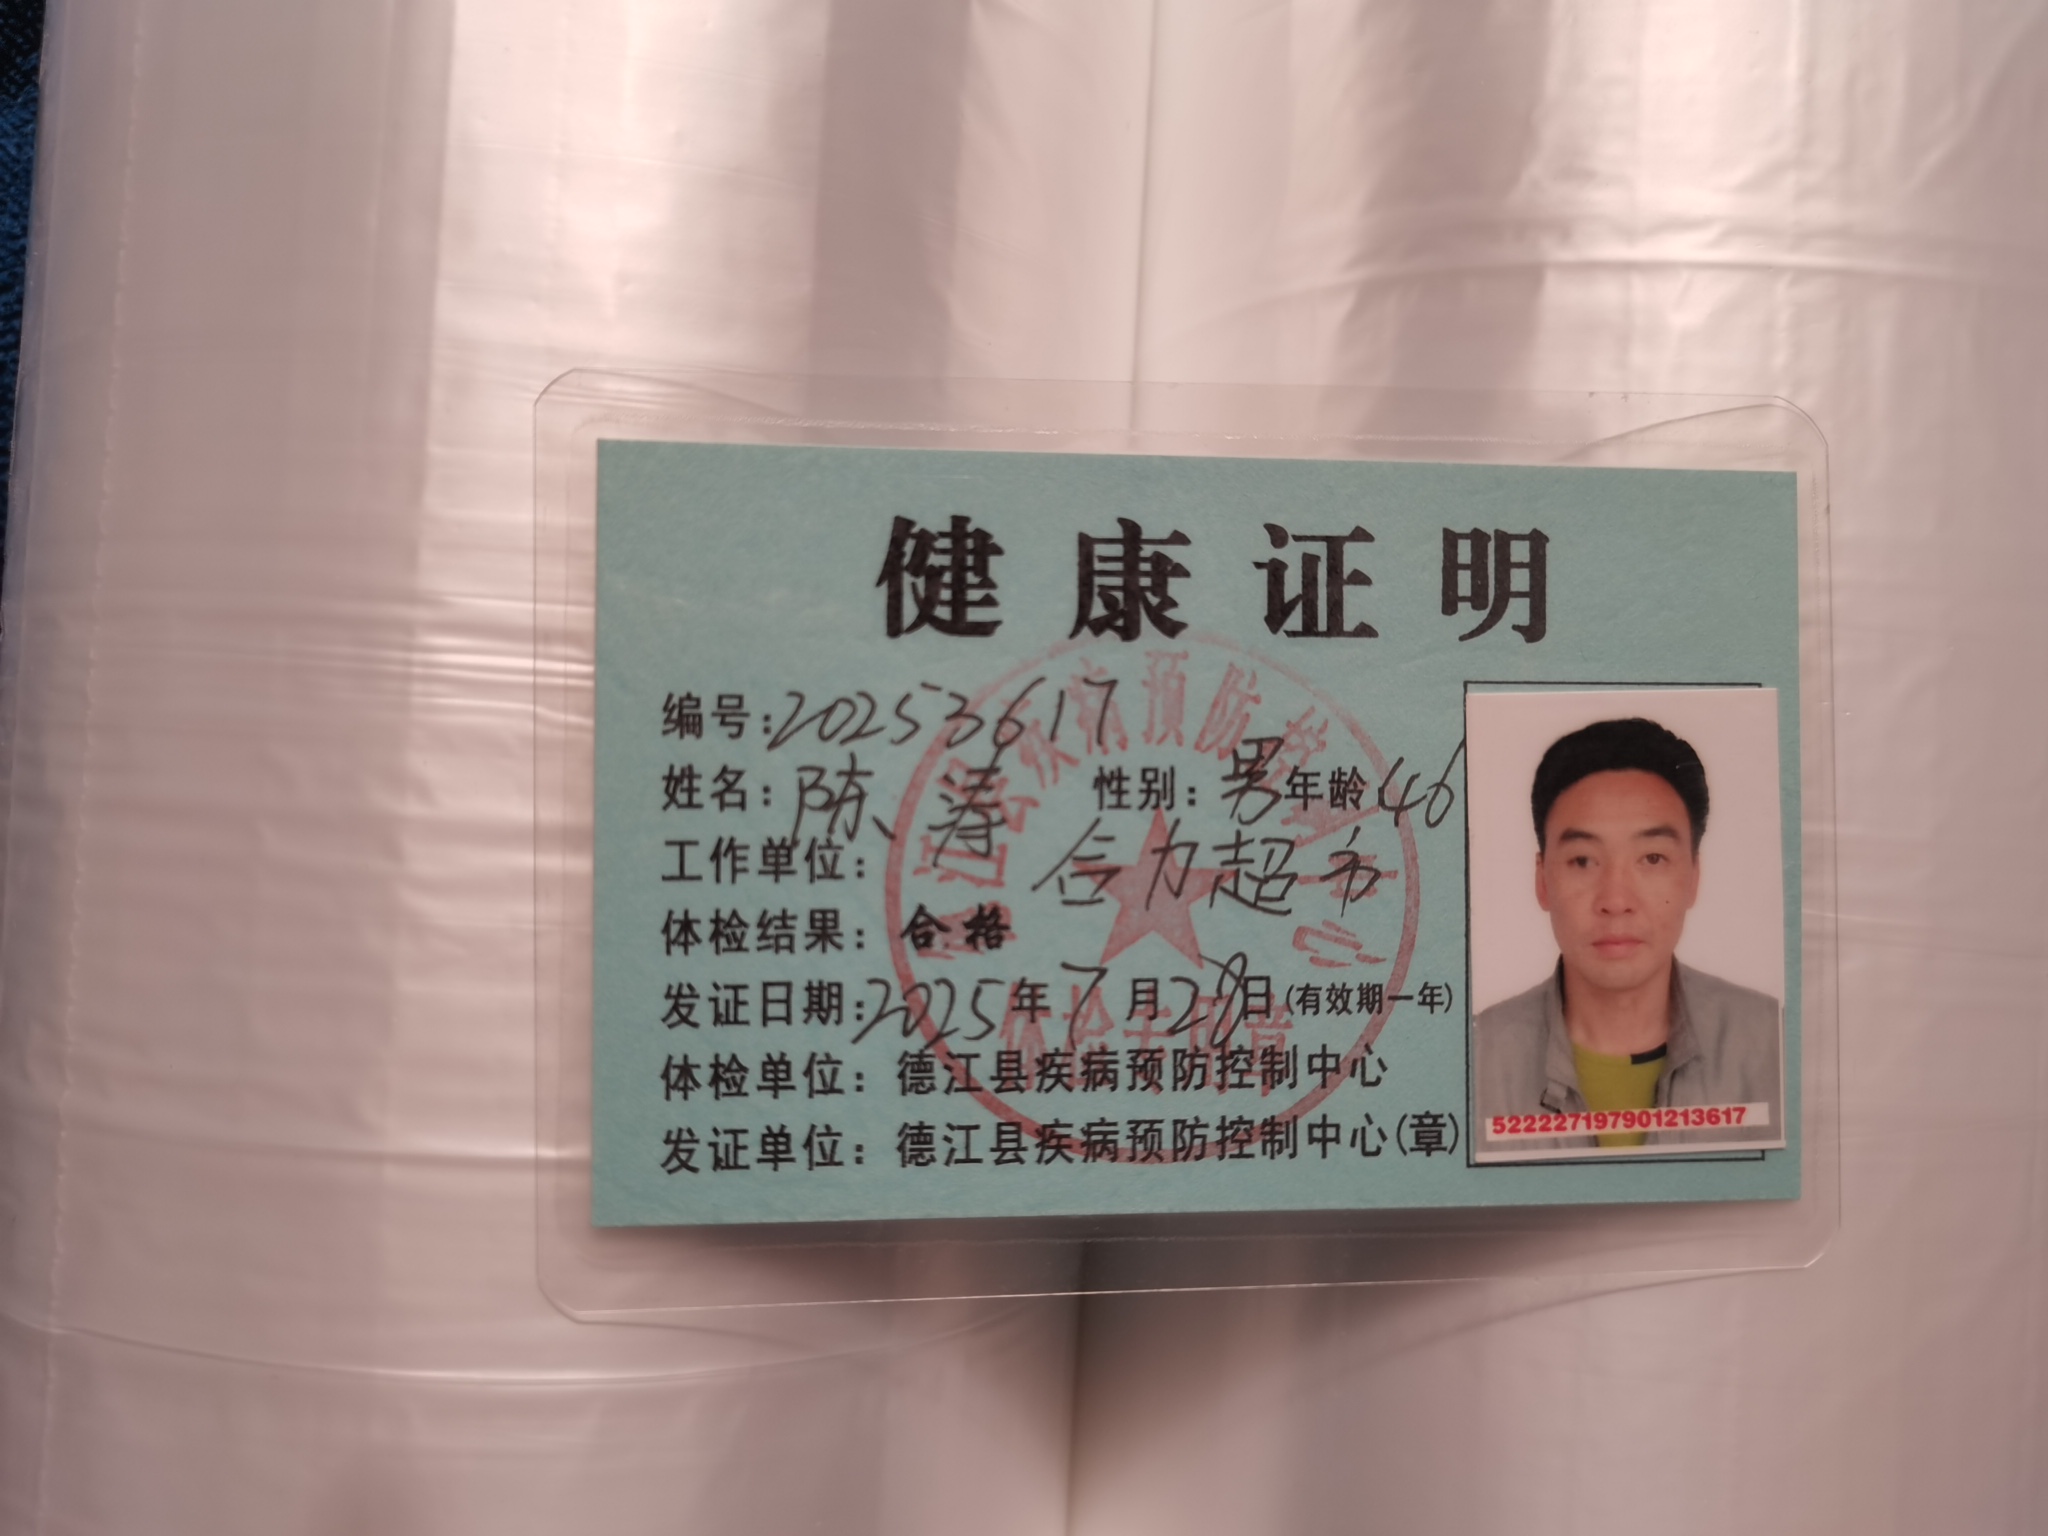 健康证明
编号:20253617
姓名:陈涛 性别:男 年龄 46
工作单位: 合力超市
体检结果:合格
发证日期:2025年7月28日(有效期一年)
体检单位:德江县疾病预防控制中心
发证单位:德江县疾病预防控制中心(章)
522227197901213617
德江县疾病预防控制中心
体检专用章